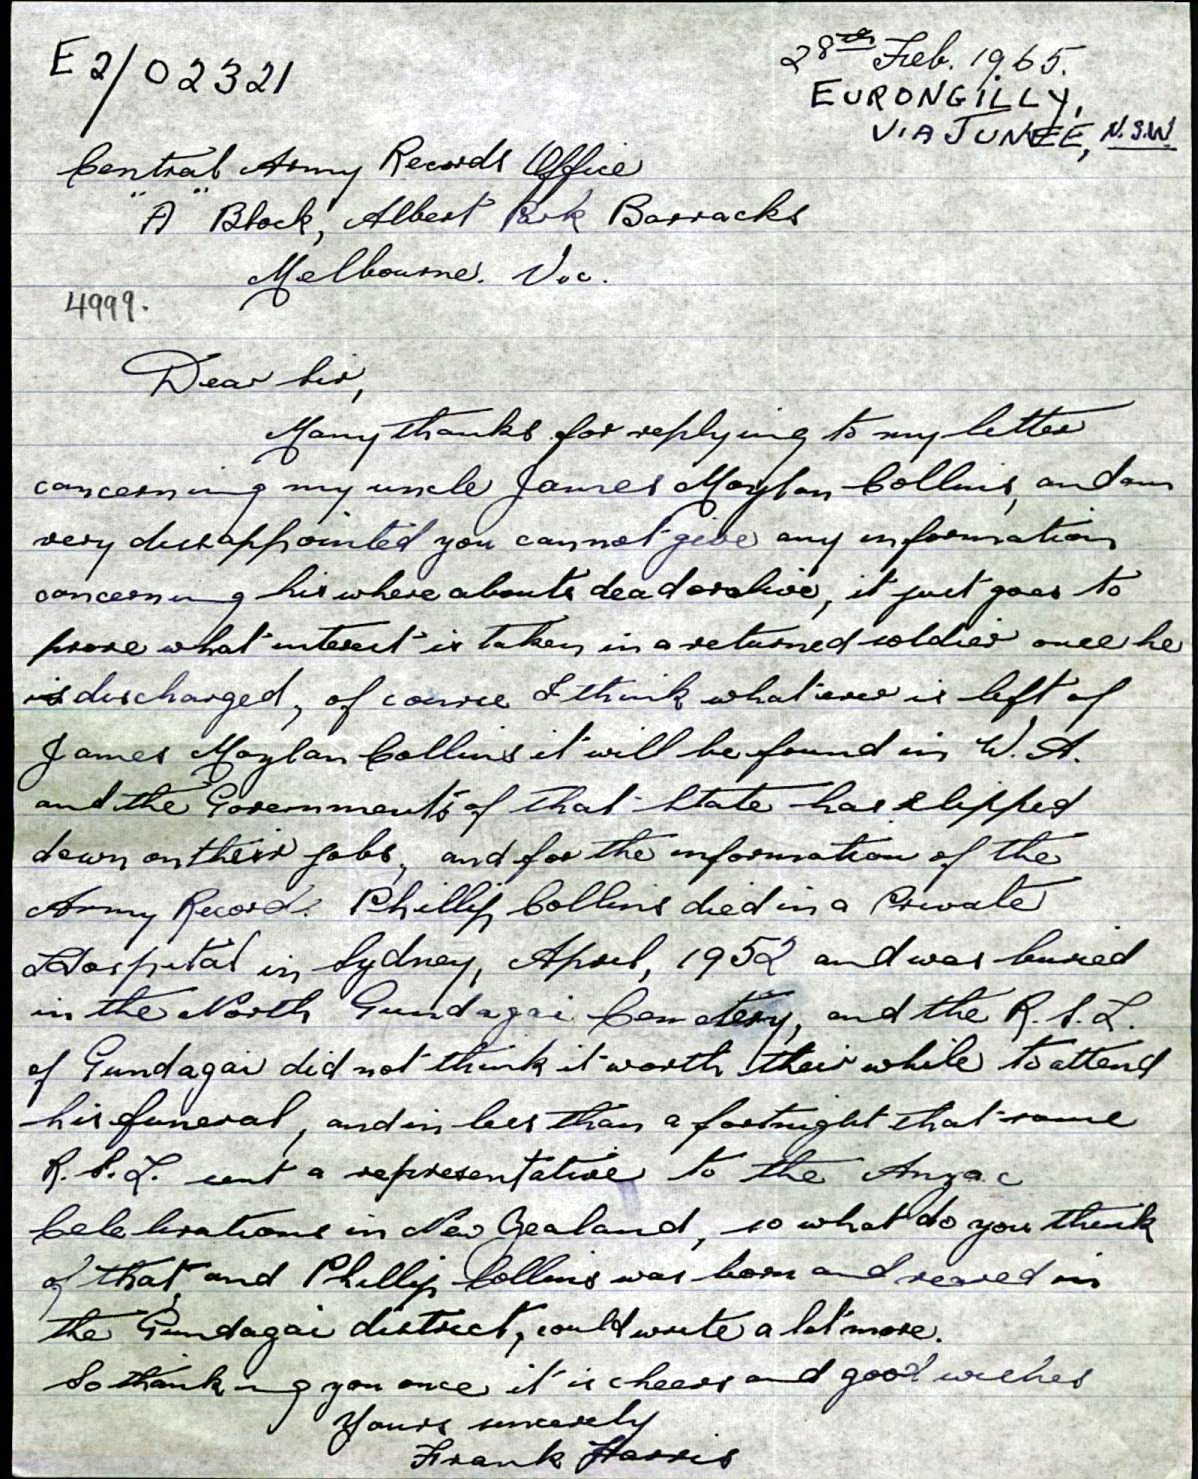 E2/02321
28th Feb. 1965.
EURONGILLY,
VIA JUNEE, N.S.W.
Central Army Records Office
"A" Block, Albert Park Barracks
Melbourne. Vic.
4999.
Dear Sir,
Many thanks for replying to my letter
concerning my uncle James Moylan Collins, and am
very dissappointed you cannot give any information
concerning his where abouts dead or alive, it just goes to
prove what interest is taken in a returned soldier once he
is discharged, of course I think what ever is left of
James Moylan Collins it will be found in W. A.
and the Governments of that State has slipped
down on their jobs, and for the information of the
Army Records Phillip Collins died in a Private
Hospital in Sydney, April, 1952 and was buried
in the North Gundagai Cemetery, and the R. S. L.
of Gundagai did not think it worth their while to attend
his funeral, and in less than a fortnight that same
R. S. L. sent a representative to the Anzac
Celebrations in New Zealand, so what do you think
of that, and Phillip Collins was born and reared in
the Gundagai district, could write a lot more.
So thanking you once it is cheers and good wishes
Yours sincerely
Frank Harris